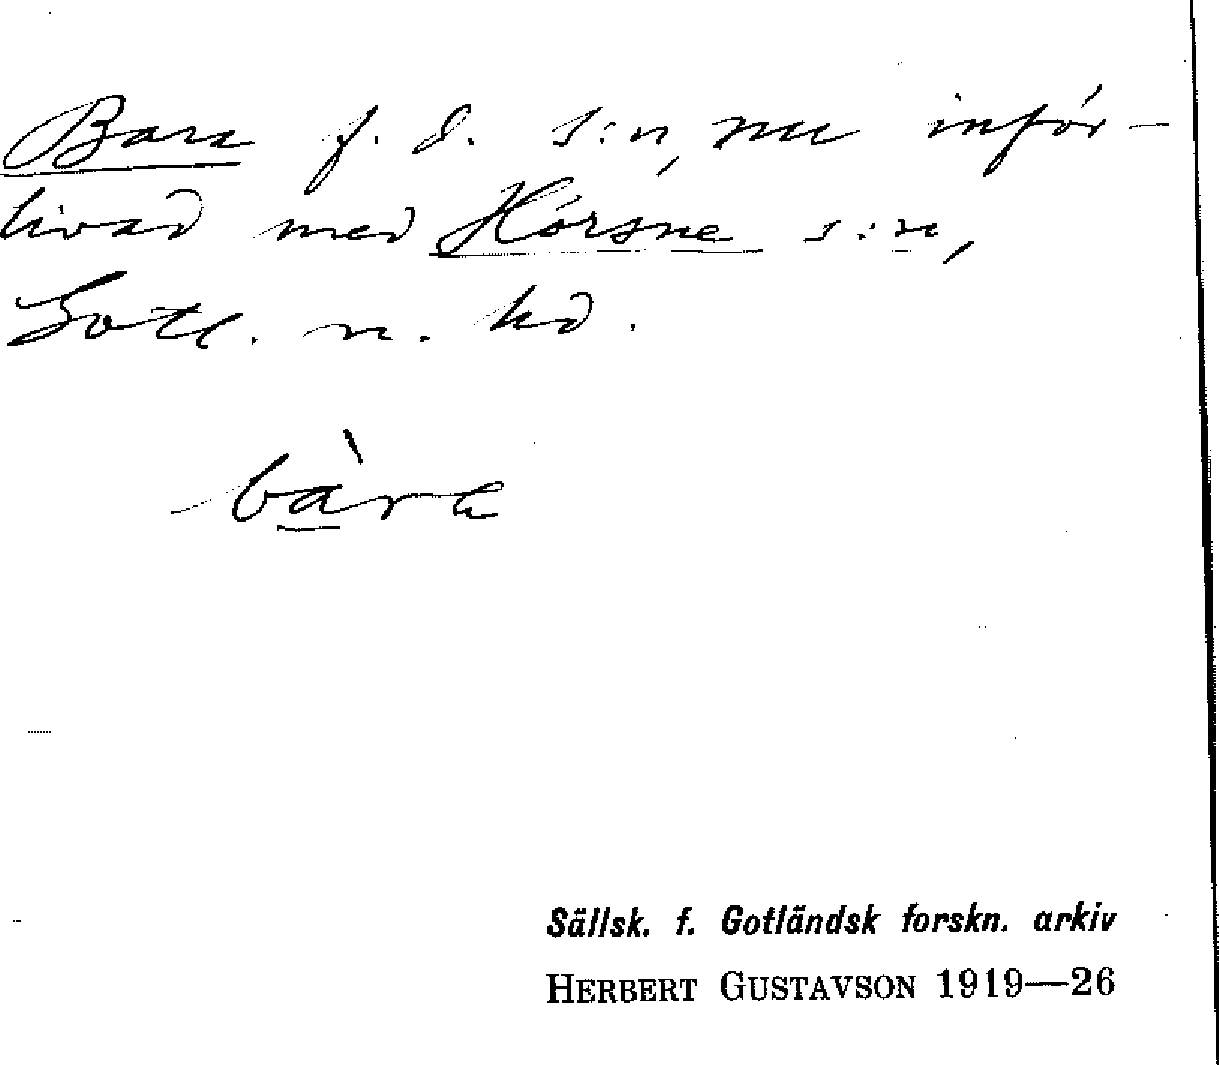 Bara f. d. s:n, nu inför-
livad med Hörsne s:n,
Gotl. n. hd.
bàra
Sällsk. f. Gotländsk forskn. arkiv
HERBERT GUSTAVSON 1919—26